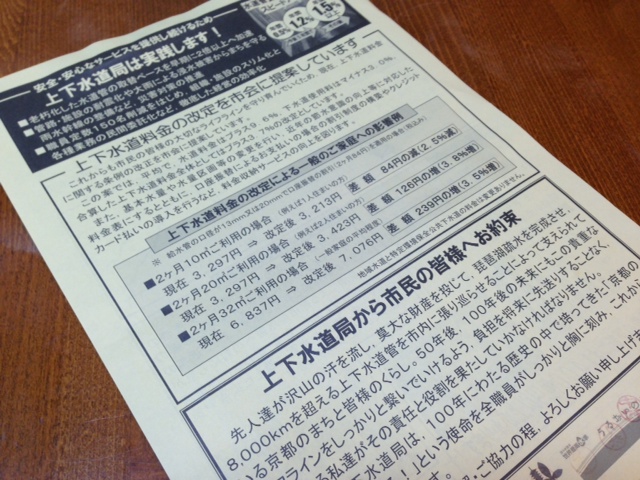 安全・安心なサービスを提供し続けるため
上下水道局は実践します！
1.2%
1.5
■老朽化した水道管の取替ペースを早期に2倍以上へ加速
■管路・施設の耐震化や大雨による浸水被害からまちを守る
雨水幹線の整備など、災害対策の推進
■職員定数150名削減をはじめ、組織・施設のスリム化と
各種業務の民間委託化など、徹底した経営の効率化
上下水道料金の改定を市会に提案しています
これからも市民の皆様の大切なライフラインを守り育んでいくため、現在、上下水道料金
に関する条例の改正を市会に提案しています。
この案では、平均で、水道料金はプラス9.6%、下水道使用料はマイナス3.0%、
合算した上下水道料金全体としてはプラス3.7%の改定としています。
また、基本水量や水量区画等の変更を行い、近年の節水意識の向上等に対応した
料金表にするとともに、口座振替によるお支払いの場合の割引制度の構築やクレジット
カード払いの導入を行うなど、料金収納サービスの向上を図ります。
上下水道料金の改定による一般のご家庭への影響例
■2ヶ月10㎥ご利用の場合 (例えば1人住まいの方)
現在 3,297円 ⇒ 改定後 3,213円 差額 84円の減(2.5%減)
■2ヶ月20㎥ご利用の場合 (例えば2人住まいの方)
現在 3,297円 ⇒ 改定後 3,423円 差額 126円の増(3.8%増)
■2ヶ月32㎥ご利用の場合 (一般家庭の平均程度)
現在 6,837円 ⇒ 改定後 7,076円 差額 239円の増(3.5%増)
地域水道と特定環境保全公共下水道の料金は変更ありません。
上下水道局から市民の皆様へお約束
先人達が沢山の汗を流し、莫大な財産を投じて、琵琶湖疏水を完成させ、
8,000kmを超える上下水道管を市内に張り巡らせることによって支えられて
いる京都のまちと皆様のくらし。50年後、100年後の未来にもこの貴重な
ラインをしっかりと繋いでいけるよう、負担を将来に先送りすることなく、
る私達がその責任と役割を果たしていかなければなりません。
下水道局は、100年にわたる歴史の中で培ってきた「京都の
」という使命を全職員がしっかりと胸に刻み、これか
・ご協力の程、よろしくお願い申し上げま